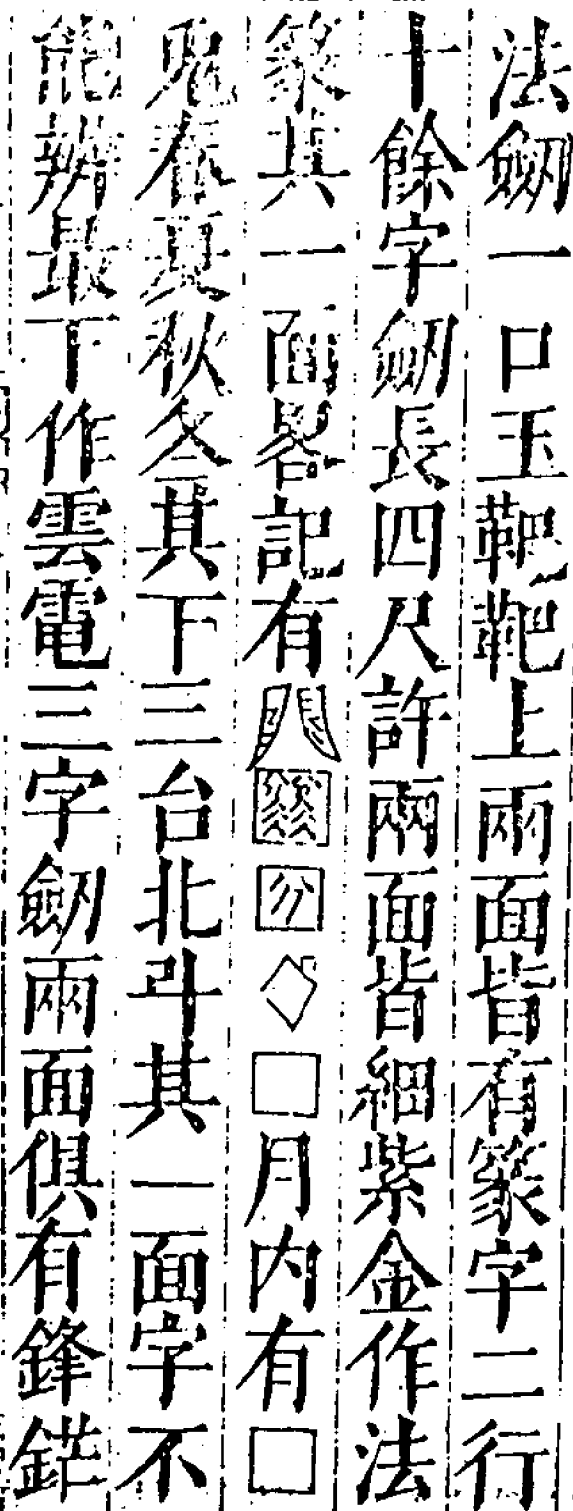 法劒一口玉靶靶上兩面皆有篆字二行
十餘字劒長四尺許兩面皆細紫金作法
篆其一面畧記有□月内有□
鬼春夏秋冬其下三台北斗其一面字不
能辨最下作雲電三字劒兩面俱有鋒鋩